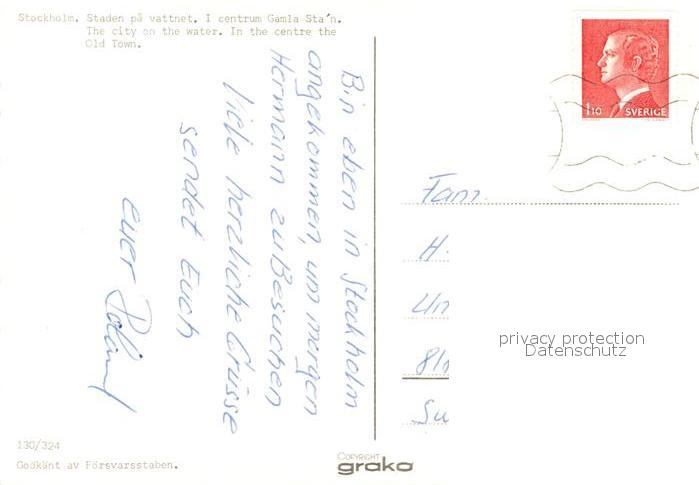 Stockholm. Staden på vattnet. I centrum Gamla Sta´n.
The city on the water. In the centre the
Old Town.
Bin eben in Stockholm
angekommen, um morgen
Hermann zu Besuchen
Viele herzliche Grüsse
sendet Euch
euer Roland
1.10 SVERIGE
Fam.
H.
Un
8
Su
privacy protection
Datenschutz
130/324
Godkänt av Försvarsstaben.
COPYRIGHT
grako